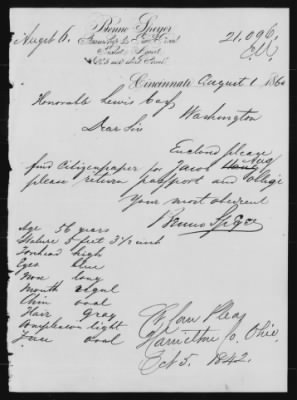 Bruno Speyer
August 6.
21,096,
Cincinnati August 1 1860
Honorable Lewis Cass
Washington
Dear Sir
Enclosed please
find Citizenpaper for Jacob Aug
please return passport and oblige
Your most obedient
Bruno Speyer
Age 56 years
Stature 5 feet 3 1/2 inch
Forehead high
Eyes blue
Nose long
Mouth
Chin oval
Hair gray
Complexion light
Face oval
Com Pleas
Hamilton Co. Ohio,
Oct 5. 1842.